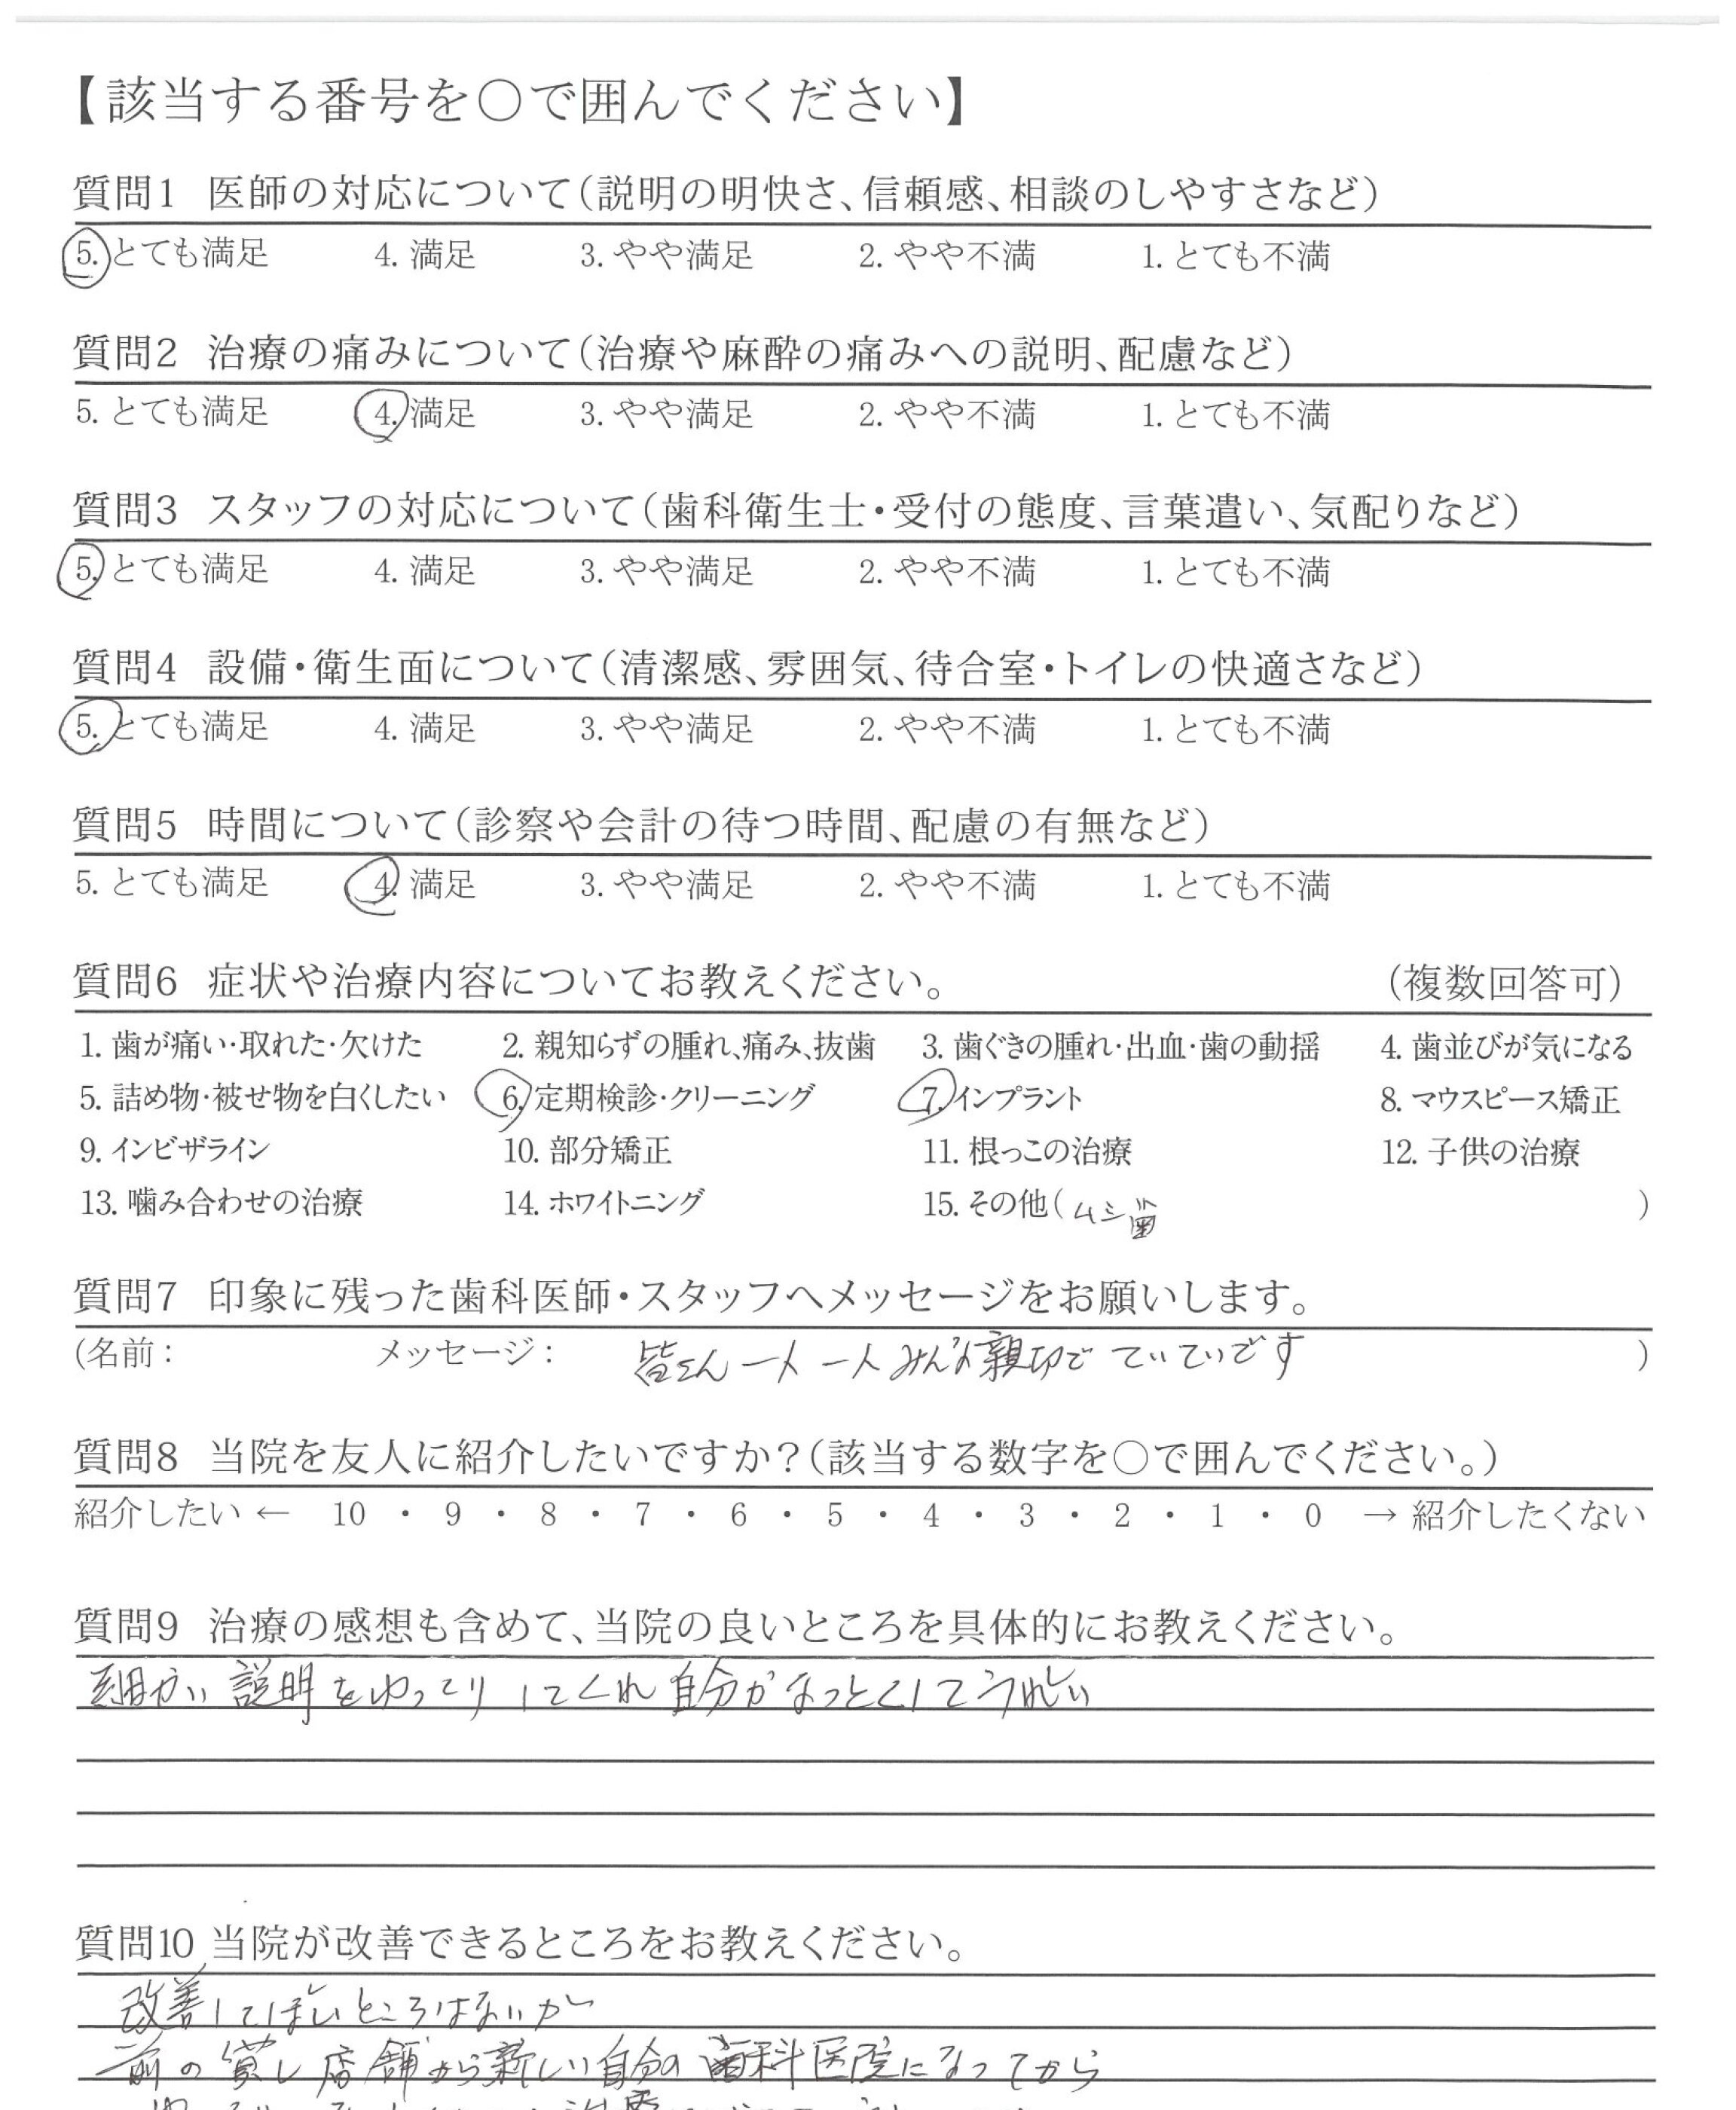 【該当する番号を○で囲んでください】
質問1 医師の対応について(説明の明快さ、信頼感、相談のしやすさなど)
5. とても満足 4. 満足 3. やや満足 2. やや不満 1. とても不満
質問2 治療の痛みについて(治療や麻酔の痛みへの説明、配慮など)
5. とても満足 4. 満足 3. やや満足 2. やや不満 1. とても不満
質問3 スタッフの対応について(歯科衛生士・受付の態度、言葉遣い、気配りなど)
5. とても満足 4. 満足 3. やや満足 2. やや不満 1. とても不満
質問4 設備・衛生面について(清潔感、雰囲気、待合室・トイレの快適さなど)
5. とても満足 4. 満足 3. やや満足 2. やや不満 1. とても不満
質問5 時間について(診察や会計の待つ時間、配慮の有無など)
5. とても満足 4. 満足 3. やや満足 2. やや不満 1. とても不満
質問6 症状や治療内容についてお教えください。 (複数回答可)
1. 歯が痛い・取れた・欠けた 2. 親知らずの腫れ、痛み、抜歯 3. 歯ぐきの腫れ・出血・歯の動揺 4. 歯並びが気になる
5. 詰め物・被せ物を白くしたい 6. 定期検診・クリーニング 7. インプラント 8. マウスピース矯正
9. インビザライン 10. 部分矯正 11. 根っこの治療 12. 子供の治療
13. 噛み合わせの治療 14. ホワイトニング 15. その他(ムシ歯 )
質問7 印象に残った歯科医師・スタッフへメッセージをお願いします。
(名前: メッセージ: 皆さん一人一人みんな親切でていていです )
質問8 当院を友人に紹介したいですか?(該当する数字を○で囲んでください。)
紹介したい ← 10 ・ 9 ・ 8 ・ 7 ・ 6 ・ 5 ・ 4 ・ 3 ・ 2 ・ 1 ・ 0 → 紹介したくない
質問9 治療の感想も含めて、当院の良いところを具体的にお教えください。
細かい説明をゆっくりしてくれ自分がなっとくしてうれしい
質問10 当院が改善できるところをお教えください。
改善してほしいところはないが
前の貸し店舗から新しい自分の歯科医院になってから